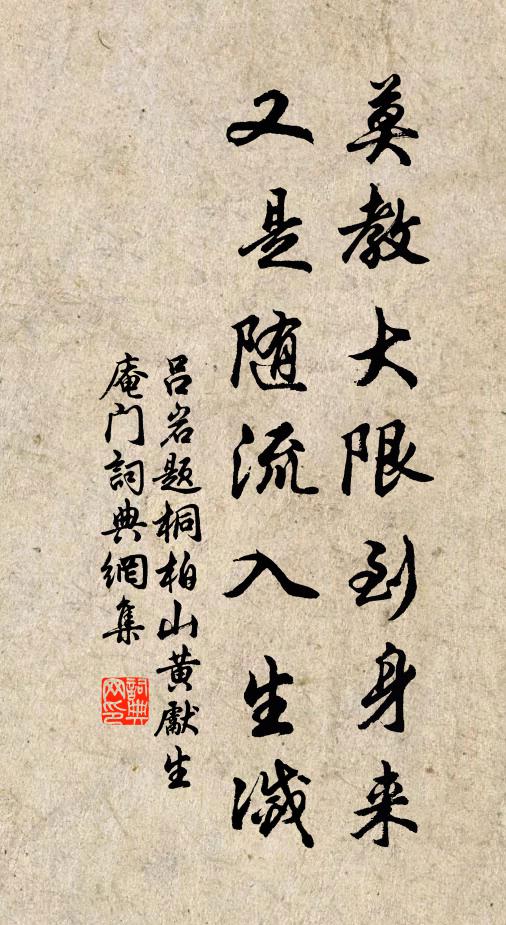 莫教大限到身来
又是随流入生滅
吕岩题桐柏山黄獻生
庵门詞典網集
詞典网印